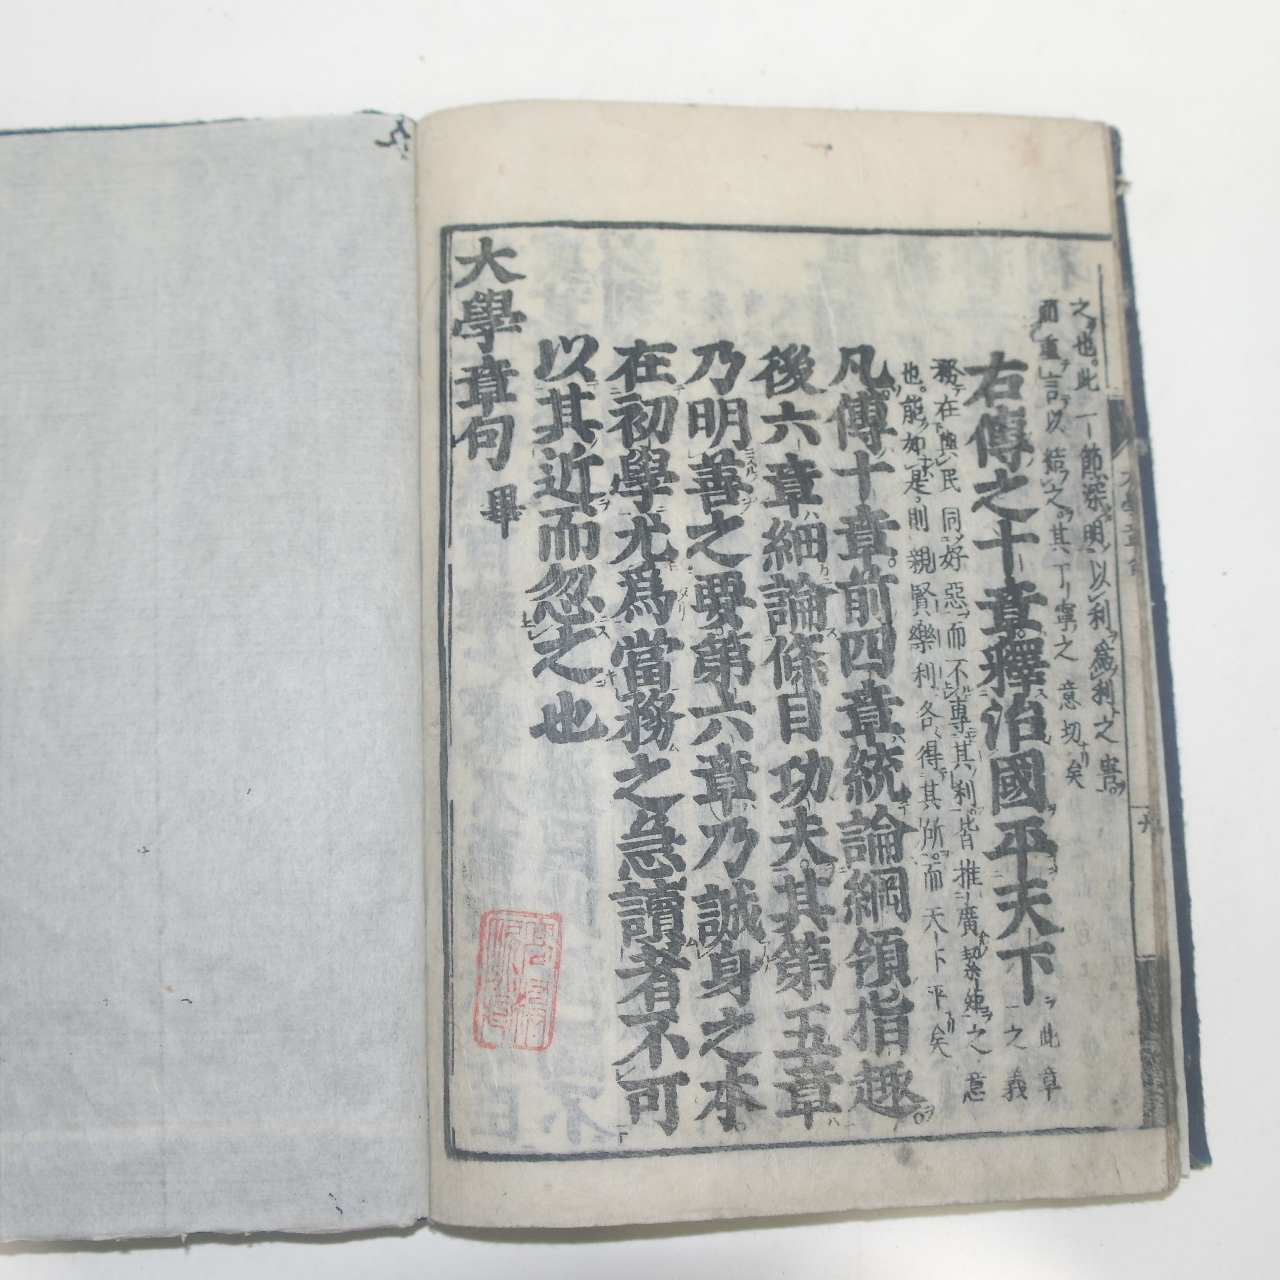 之也。此一節深明以利爲利之害。
而重言以結之。其丁寧之意切矣
右傳之十章。釋治國平天下
此章
之義
務在與民同好惡而不專其利。皆推廣絜矩之意
也。能如是則親賢樂利各得其所。而天下平矣
凡傳十章。前四章統論綱領指趣。
後六章細論條目功夫。其第五章
乃明善之要。第六章乃誠身之本。
在初學尤爲當務之急讀者不可
以其近而忽之也
大學章句 畢